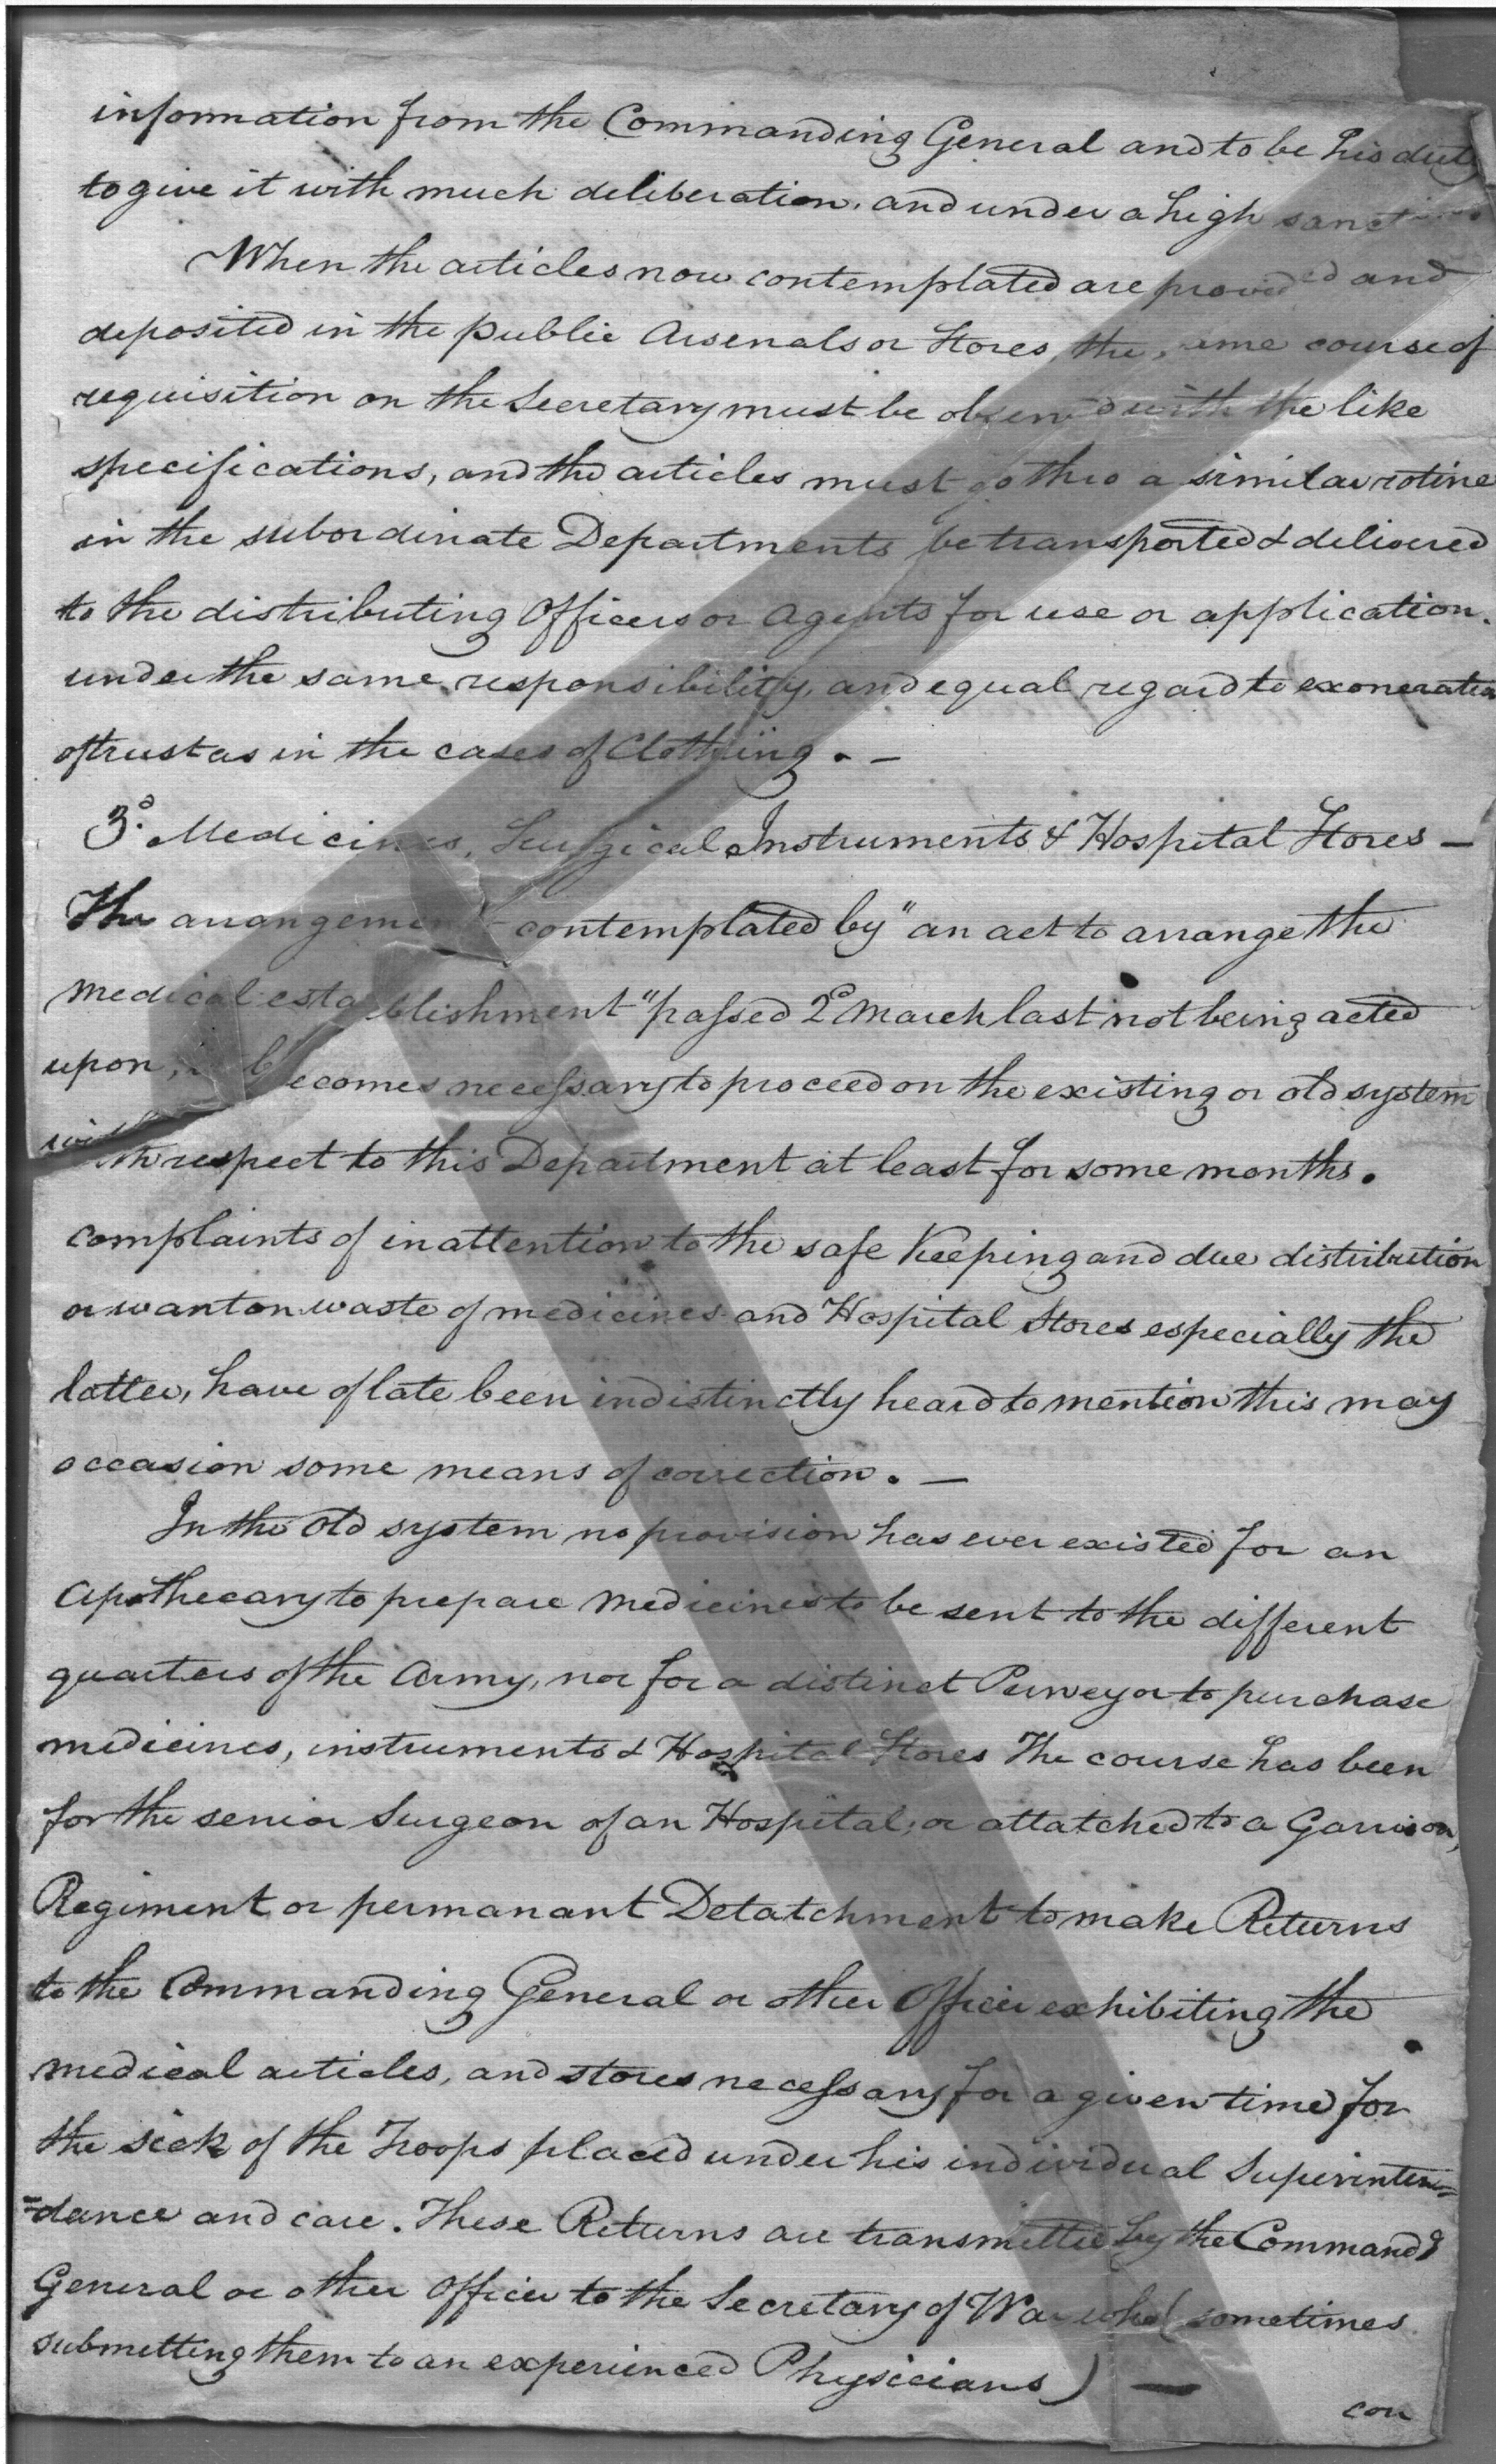 information from the Commanding General and to be his duty
to give it with much deliberation, and under a high sanction
When the articles now contemplated are provided and
deposited in the public Arsenals or Stores, the same course of
requisition on the Secretary must be observed with the like
specifications, and the articles must go thro a similar rotine
in the subordinate Departments be transported & delivered
to the distributing Officers or Agents for use or application.
under the same responsibility, and equal regard to exoneration
of trust as in the cases of Clothing. -
3d. Medicines, Surgical Instruments & Hospital Stores -
The arrangement contemplated by "an act to arrange the
medical establishment" passed 2d March last not being acted
upon, it becomes necessary to proceed on the existing or old system
with respect to this Department at least for some months.
complaints of inattention to the safe Keeping and due distribution
or wanton waste of medicines and Hospital Stores especially the
latter, have of late been indistinctly heard to mention this may
occasion some means of correction. -
In the old system no provision has ever existed for an
Apothecary to prepare Medicines to be sent to the different
quarters of the Army, nor for a distinct Purveyor to purchase
medicines, instruments & Hospital Stores The course has been
for the senior Surgeon of an Hospital, or attatched to a Garrison,
Regiment or permanant Detatchment to make Returns
to the Commanding General or other Officer exhibiting the
medical articles, and stores necessary for a given time for
the sick of the Troops placed under his individual Superinten=
=dance and care. These Returns are transmitted by the Commandg
General or other Officer to the Secretary of War who (sometimes
submitting them to an experienced Physicians) -
con